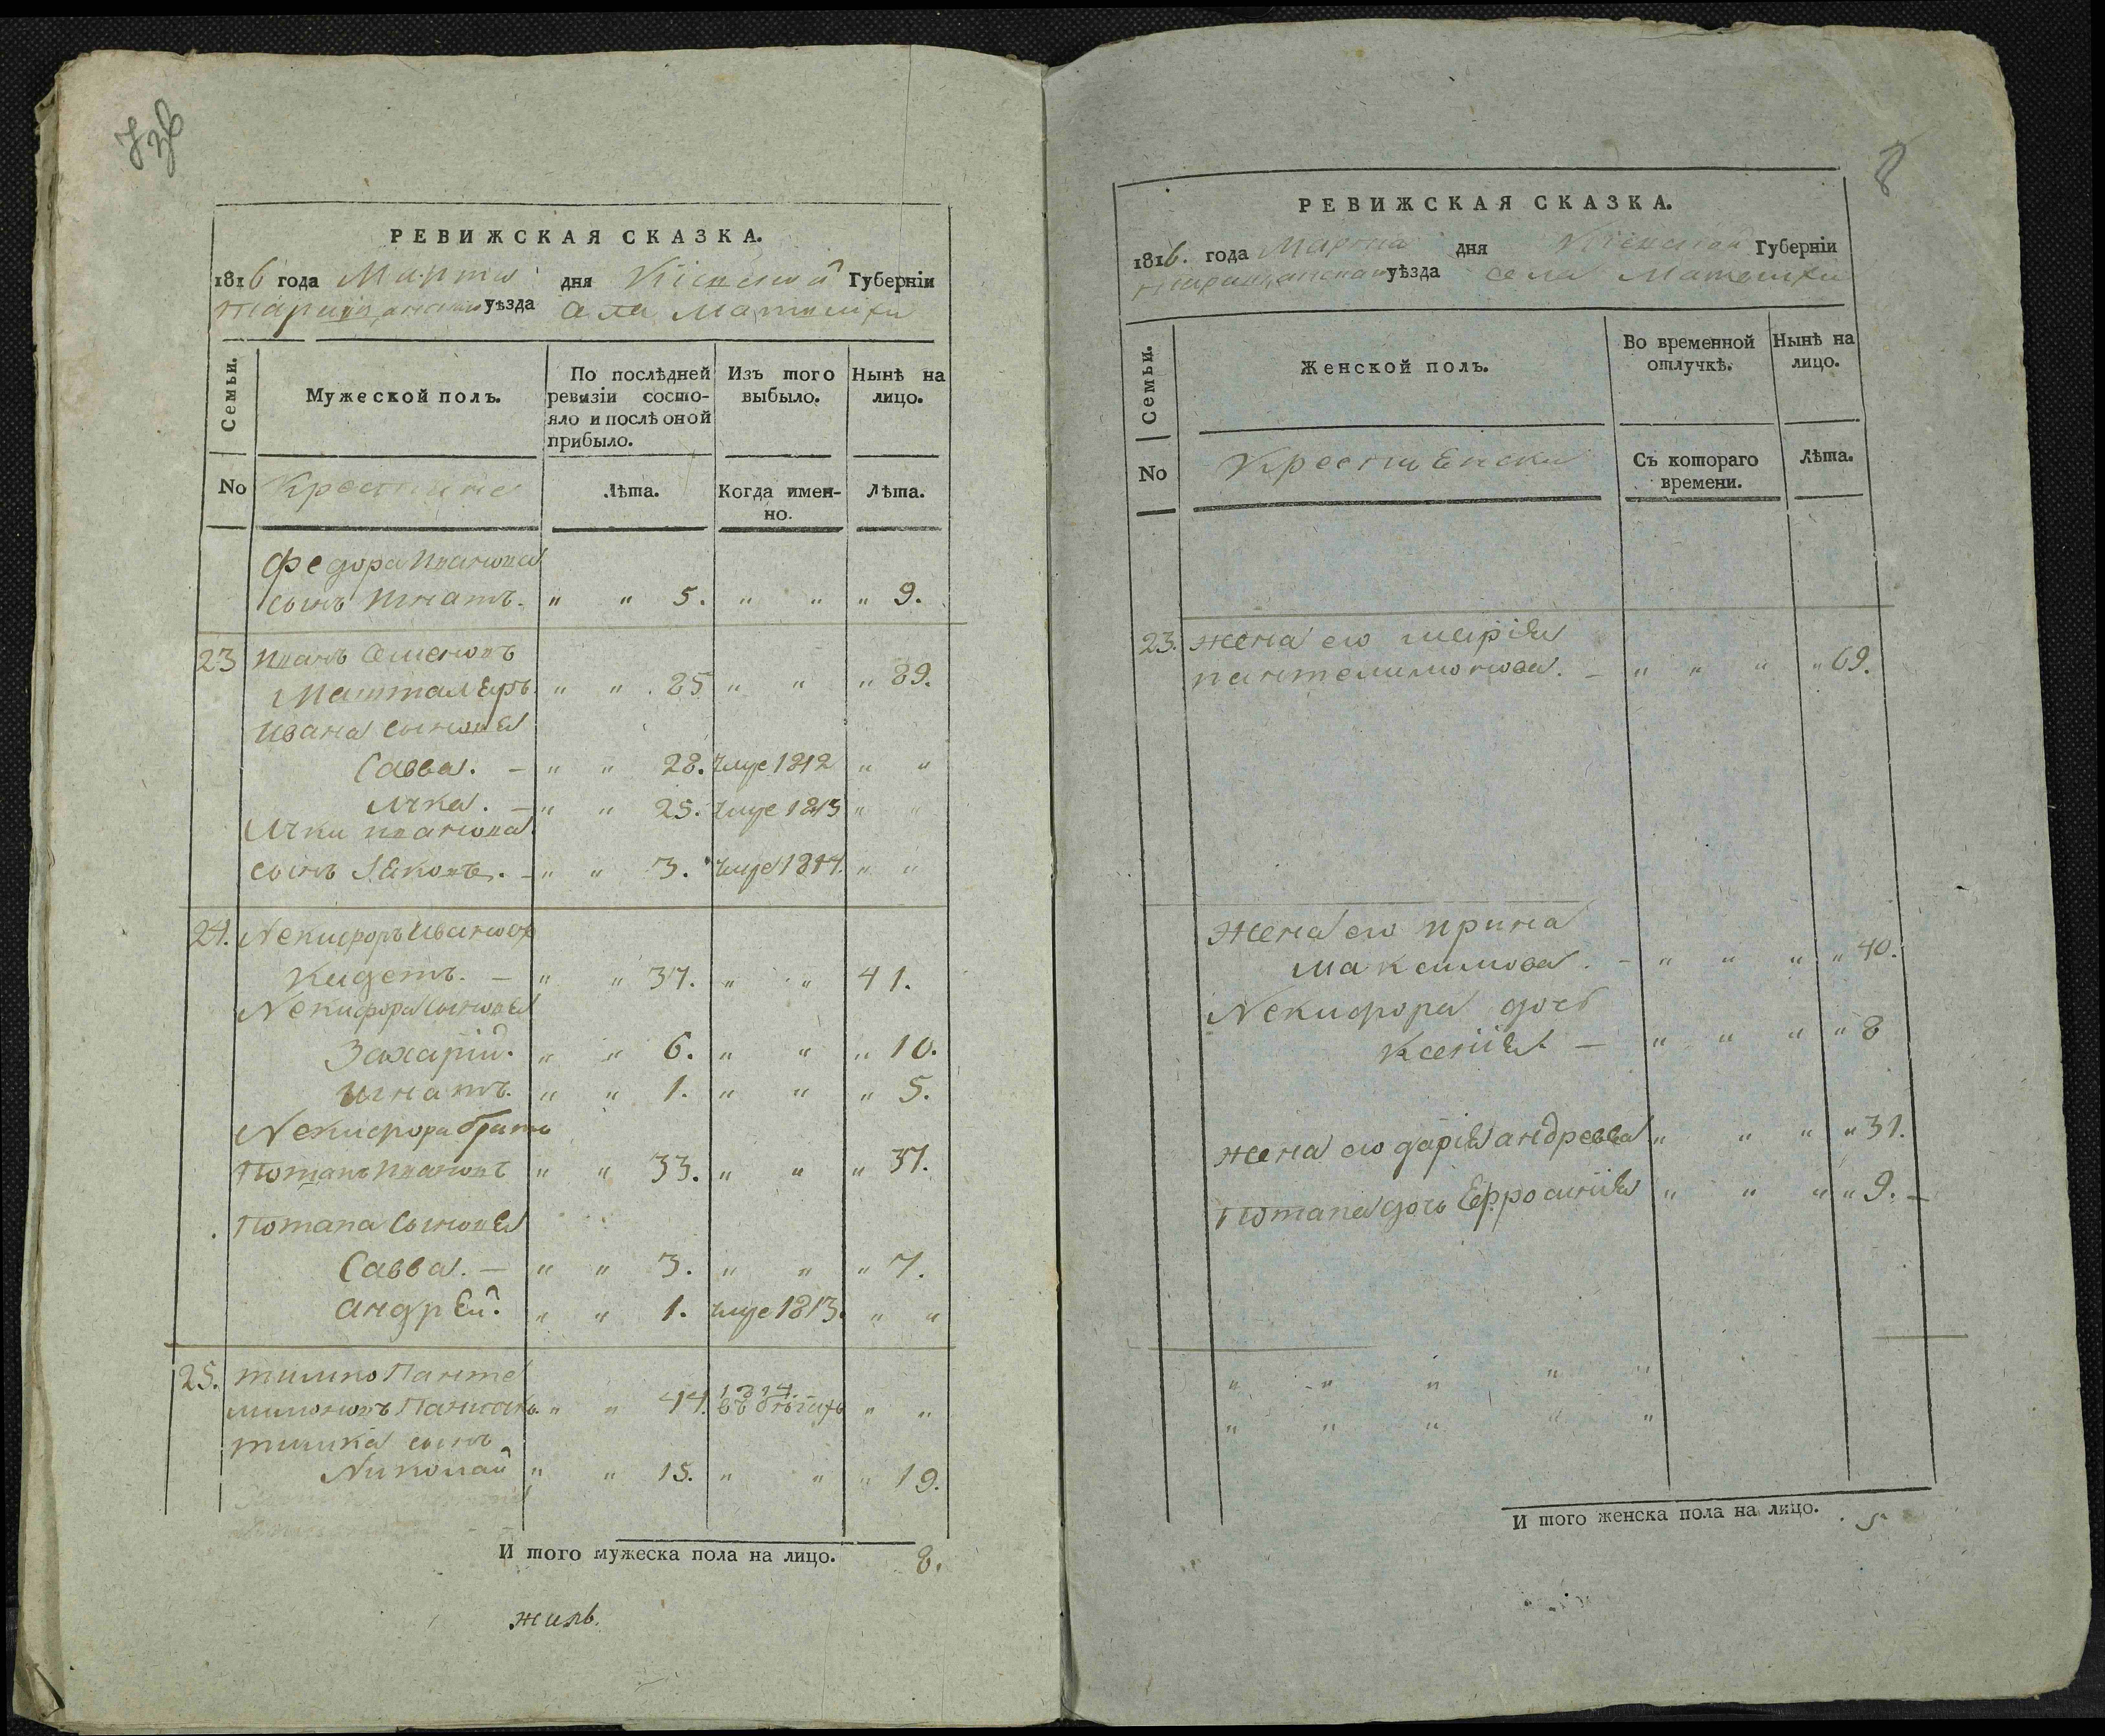 РЕВИЖСКАЯ СКАЗКА.
1816 года Марта дня Кіевской Губерніи
Таращанскаго уѣзда села Матюшхи
Семьи.
Мужеской полъ.
По послѣдней ревизіи состо-
яло и послѣ оной
прибыло.
Изъ того
выбыло.
Нынѣ на
лицо.
No
Крестьяне
Лѣта.
Когда имен-
но.
Лѣта.
Федора Иванова
сынъ Игнатъ. " " 5. " " " 9.
23 Иванъ Семеновъ
Машталѣръ. " " 85 " " " 89.
Ивана сыновья
Савва. — " " 28. умре 1812 " "
Ичка. — " " 25. умре 1813 " "
Ички Иванова
сынъ Яковъ. — " " 3. умре 1814. " "
24. Некифоръ Ивановъ
Кидетъ. — " " 37. " " 41.
Некифора сыновья
Захарій. " " 6. " " " 10.
Игнатъ. " " 1. " " " 5.
Некифора братъ
Потапъ Ивановъ " " 33. " " " 37.
Потапа сыновья
Савва. — " " 3. " " " 7.
Андрѣй. " " 1. умре 1813. " "
25. Тимко Панте
лимоновъ " " 44. 1814 въ бѣгахъ " "
Тимка сынъ
Николай " " 15. " " " 19.
И того мужеска пола на лицо. 8.
жилъ.
8
РЕВИЖСКАЯ СКАЗКА.
1816. года Марта дня Кіевской Губерніи
Таращанскаго уѣзда села Матюшхи
Семьи.
Женской полъ.
Во временной
отлучкѣ.
Нынѣ на
лицо.
No
Съ котораго
времени.
Лѣта.
23. жена его Марія
Пантелимонова. — " " " " 69.
жена его Ирина
Максимова. — " " " " 40.
Некифора дочь
Ксенія. — " " " " 8
жена его Дарія Андреева " " " " 31.
Потапа дочь Ефросинія " " " " 9. —
" " " " "
" " " " "
И того женска пола на лицо. 5